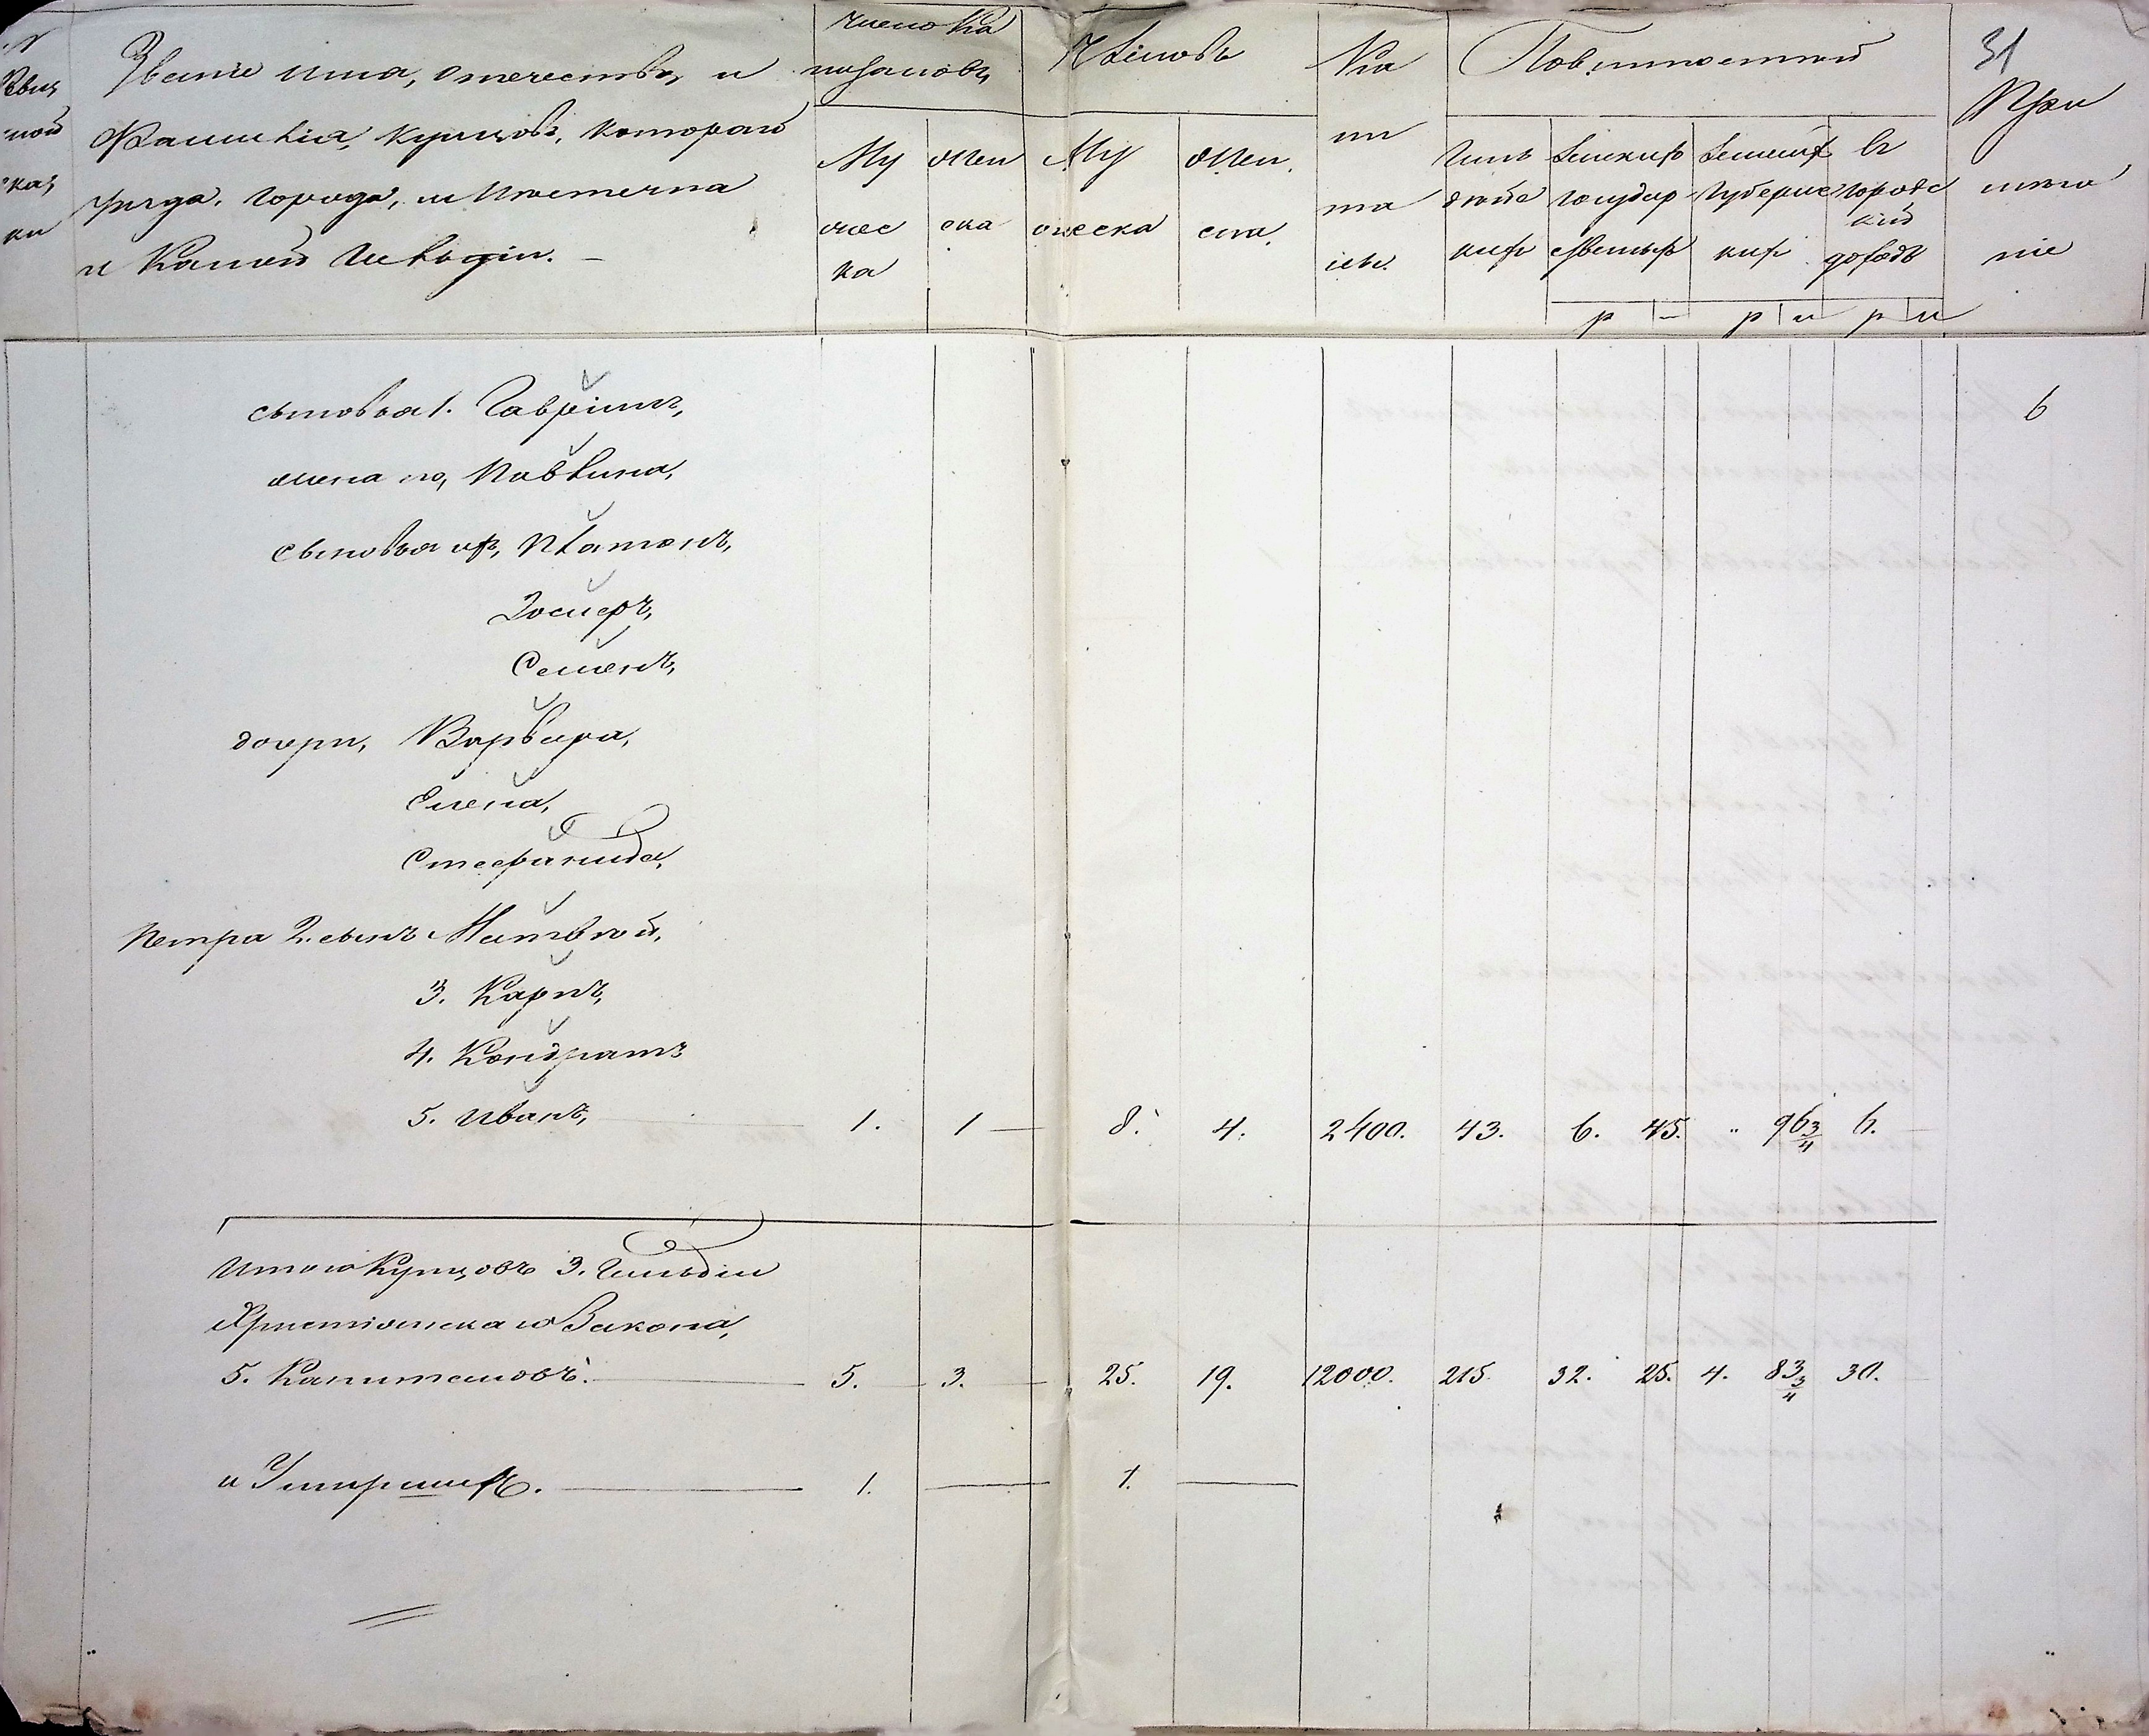 31
№
Званіе имя, отечество, и
Фамилія, купцовъ, котораго
уѣзда, города, и местечка
и какой Гильдіи. –
число Ка
питаловъ
Му
жес
ка
жен
ска
Членовъ
Му
жеска
жен.
ска.
Ка
пи
та
лы.
Повинностей
Гиль
дейс
кихъ
Земскихъ
государ
ственыхъ
Земскихъ
Губернс
кихъ
въ
городс
кій
доходъ
При
меча
ніе
р – р к р к
сыновья 1. Гавріилъ,
жена его, Павлина,
сыновья ихъ, Платонъ,
Іосифъ,
Семенъ,
дочери, Варвара,
Елена,
Стефанида,
Петра 2. сынъ Матвѣй,
3. Карпъ,
4. Кондратъ
5. Иванъ, 1. 1 — 8. 4. 2400. 43. 6. 45. „ 96 3/4 6. —
6
Итого Купцовъ 3. Гильдіи
Христіанскаго Закона,
5. Капиталовъ. 5. 3. 25. 19. 12000. 215. 32. 25. 4. 83 3/4 30.
и Умершихъ. 1. — 1. —